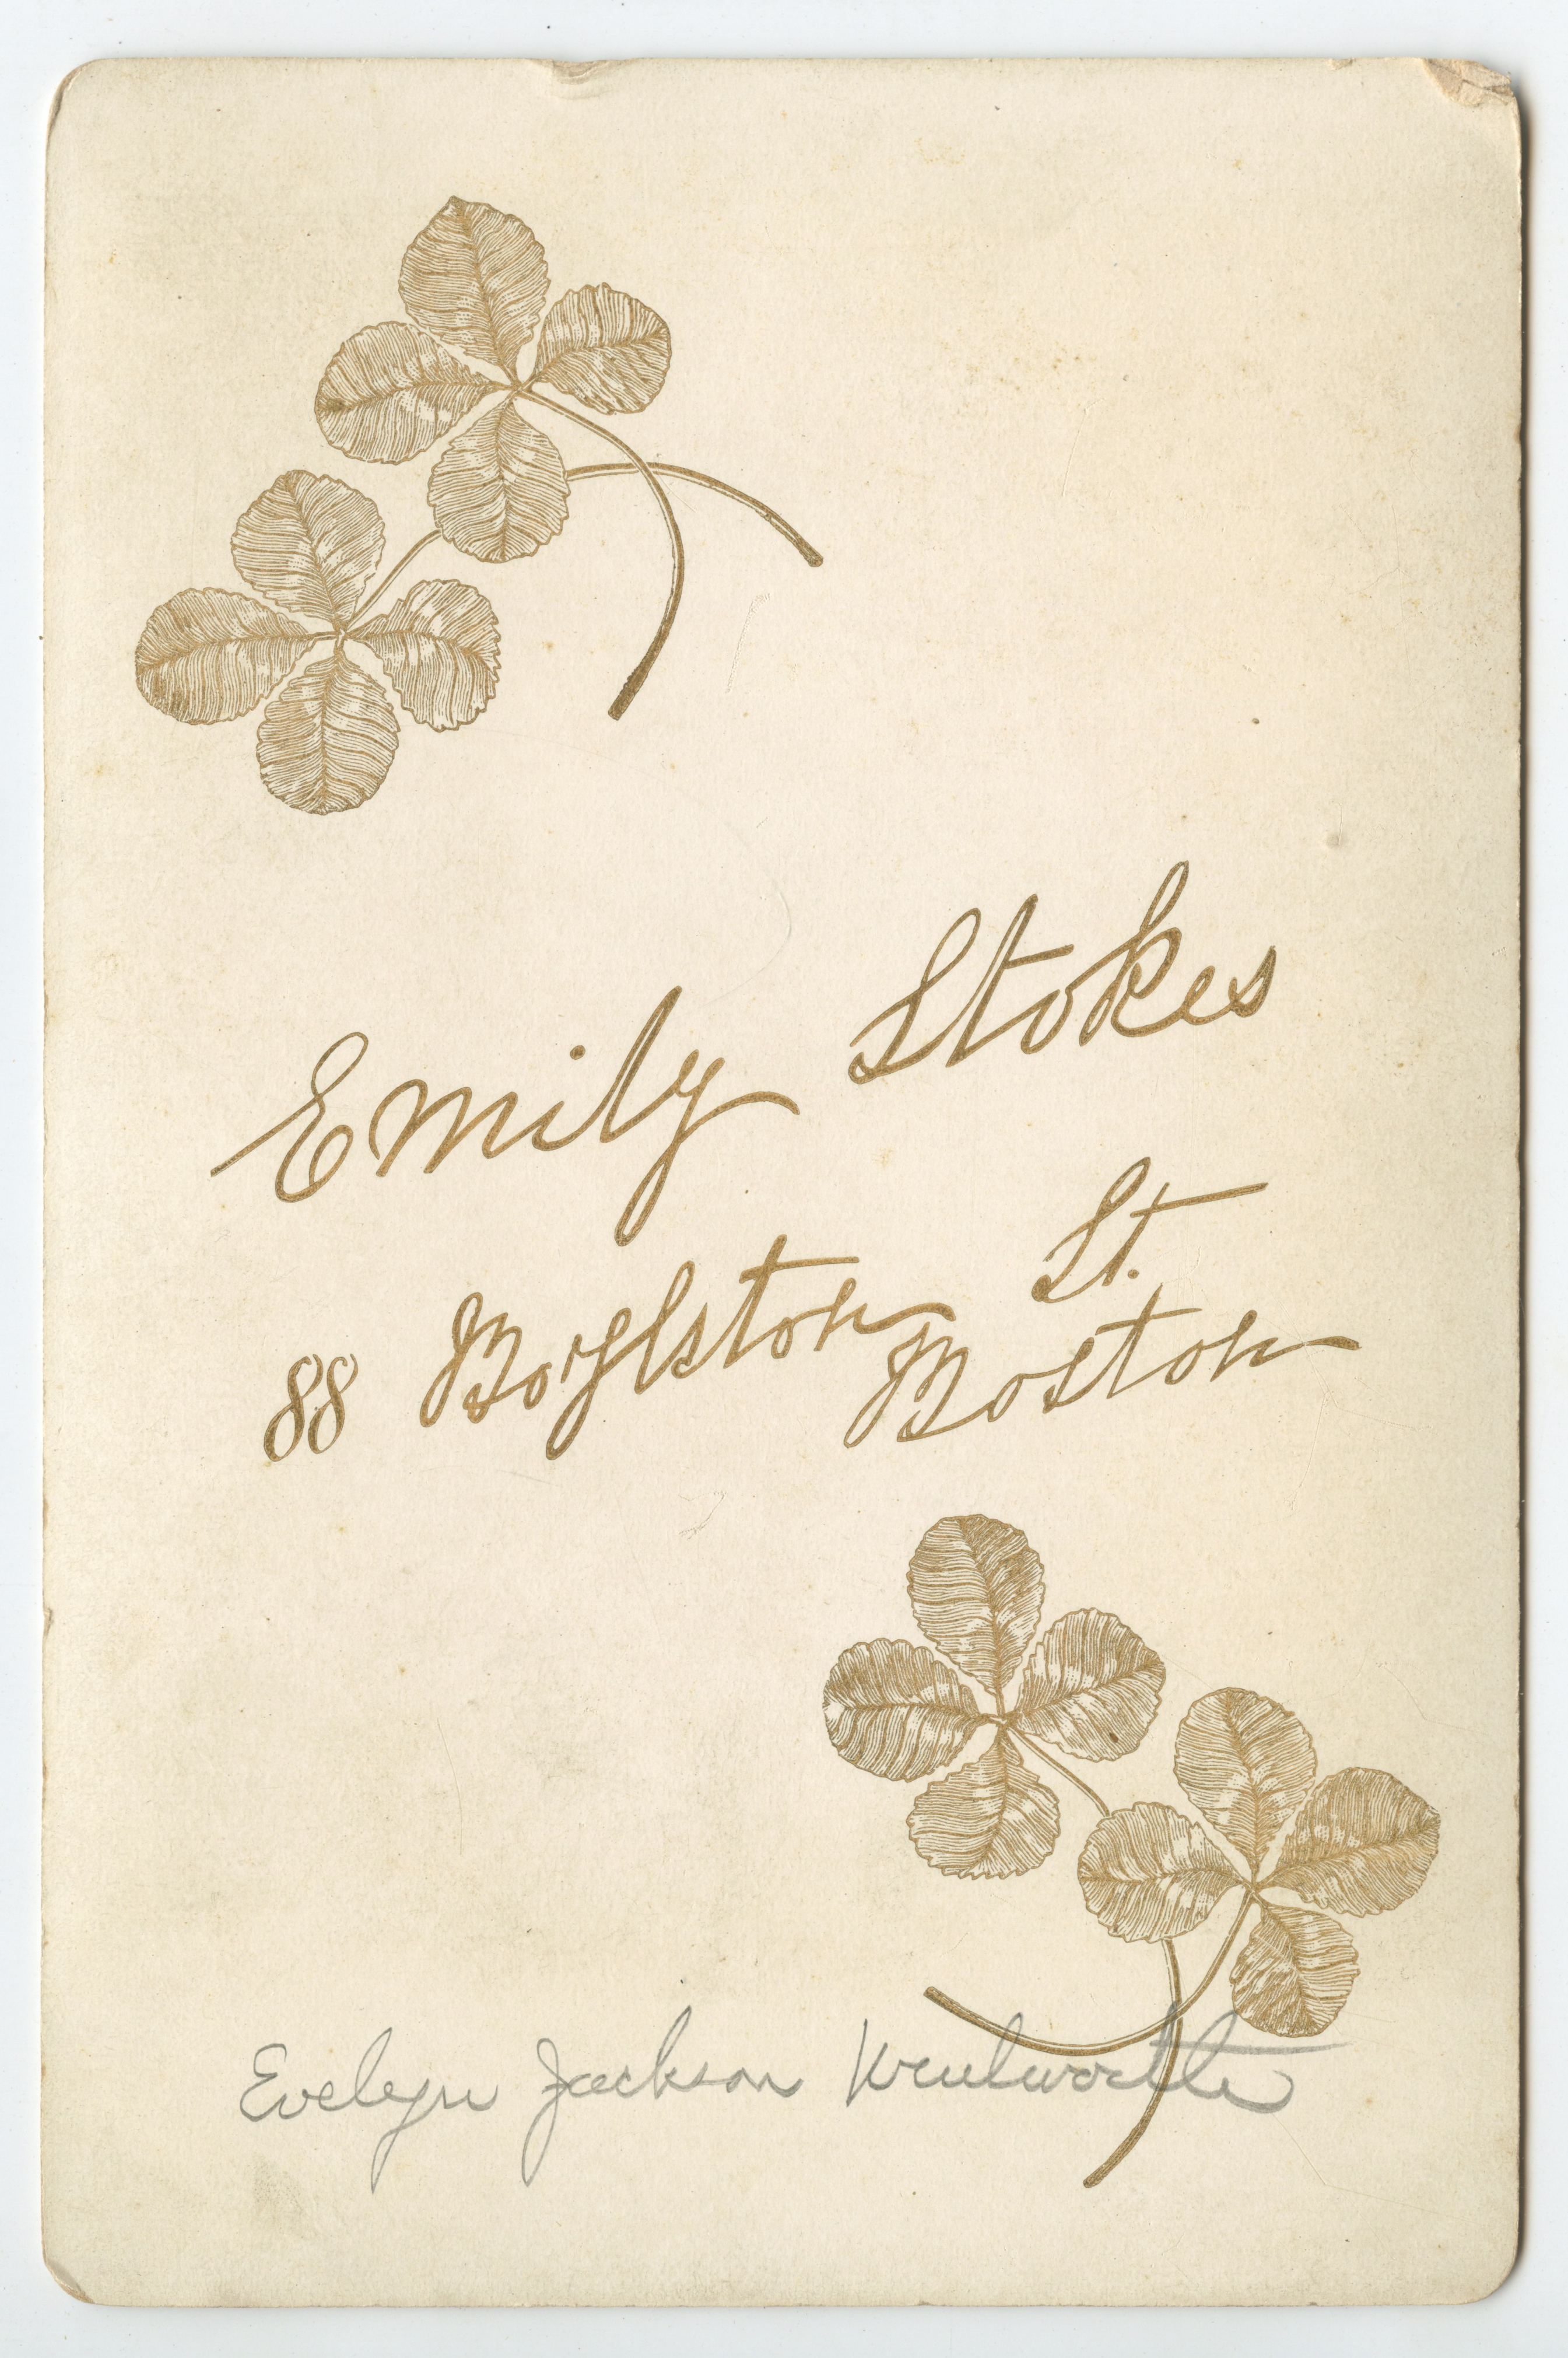 Emily Stokes
88 Boylston St.
Boston
Evelyn Jackson Wentworth